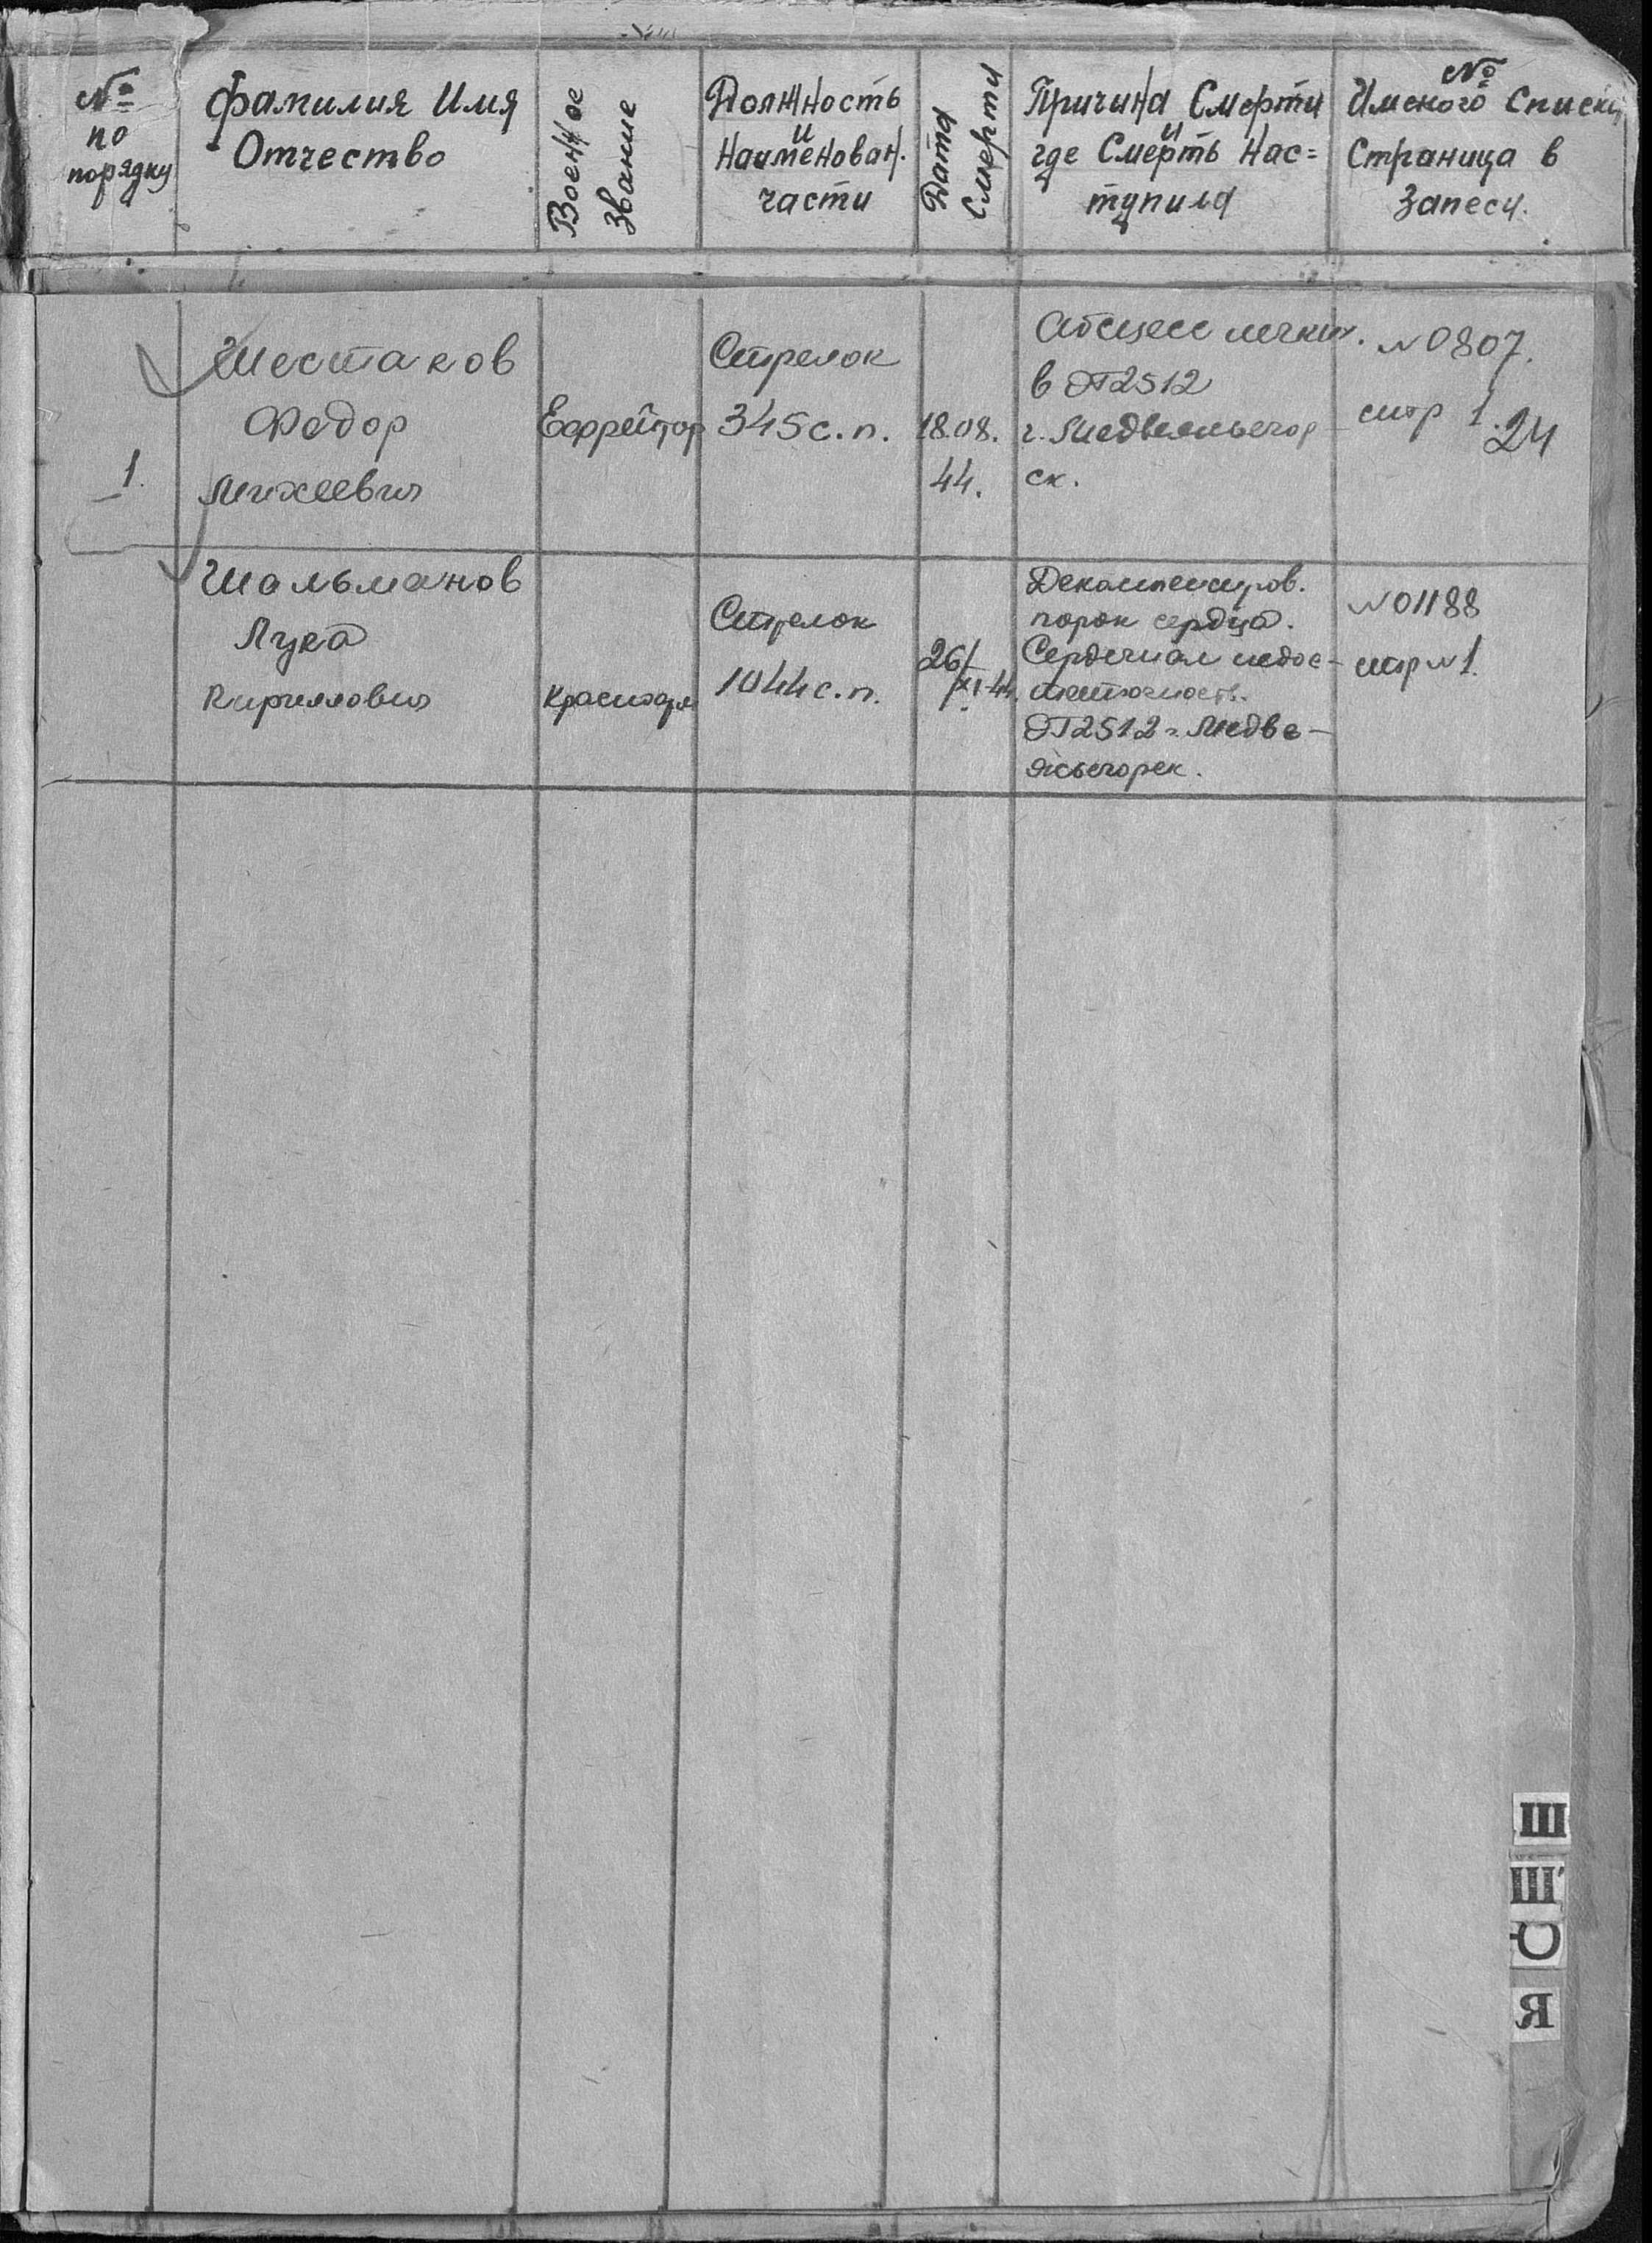 № по порядку
Фамилия Имя
Отчество
Военное
звание
Должность
и
Наименован.
части
Дата
Смерти
Причина Смерти
и
где Смерть Нас=
тупила
№
Именого Списка
Страница в
Запеси.
1.
Шестаков
Федор
Михеевич
Ефрейтор
Стрелок
345 с.п.
18.08.
44.
Абсцесс легких.
в ЭГ2512
г. Медвежьегор
ск.
№0807.
стр 1.
24
Шальманов
Лука
Кириллович
Красноарм
Стрелок
1044 с.п.
26/
XI-44.
Декомпенсиров.
порок сердца.
Сердечная недос-
таточность.
ЭГ2512 г. Медве-
жьегорск.
№01188
стр №1.
Ш
Щ
Я